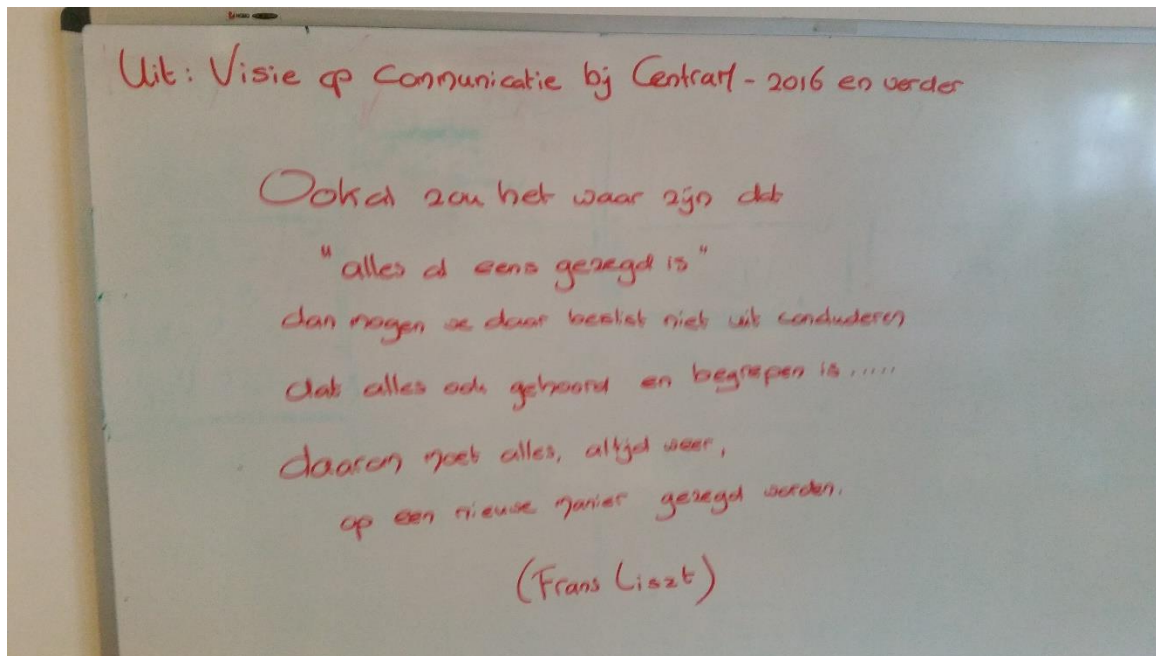 Uit: Visie op Communicatie bij Centraal - 2016 en verder
Ook al zou het waar zijn dat
"alles al eens gezegd is"
dan mogen we daar beslist niet uit concluderen
dat alles ook gehoord en begrepen is.....
daarom moet alles, altijd weer,
op een nieuwe manier gezegd worden.
(Frans Liszt)